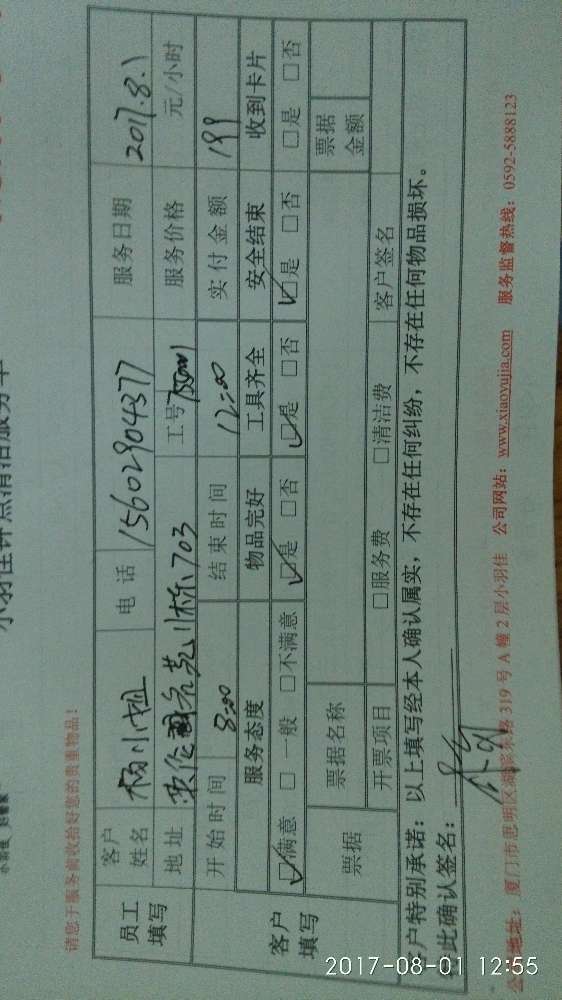 小羽佳钟点清洁服务卡
请您于服务前收拾好您的贵重物品!
员工填写 客户姓名 杨小姐 电话 15602904377 服务日期 2017.8.1
地址 703 工号 服务价格 元/小时
客户填写 开始时间 8:00 结束时间 12:00 实付金额 199
服务态度 物品完好 工具齐全 安全结束 收到卡片
☑满意 □一般 □不满意 ☑是 □否 ☑是 □否 ☑是 □否 □是 □否
票据 票据名称 票据金额
开票项目 □服务费 □清洁费 客户签名
客户特别承诺:以上填写经本人确认属实,不存在任何纠纷,不存在任何物品损坏。
在此确认签名:
公司地址:厦门市思明区湖滨东路319号A幢2层小羽佳 公司网站:www.xiaoyujia.com 服务监督热线:0592-5888123
2017-08-01 12:55